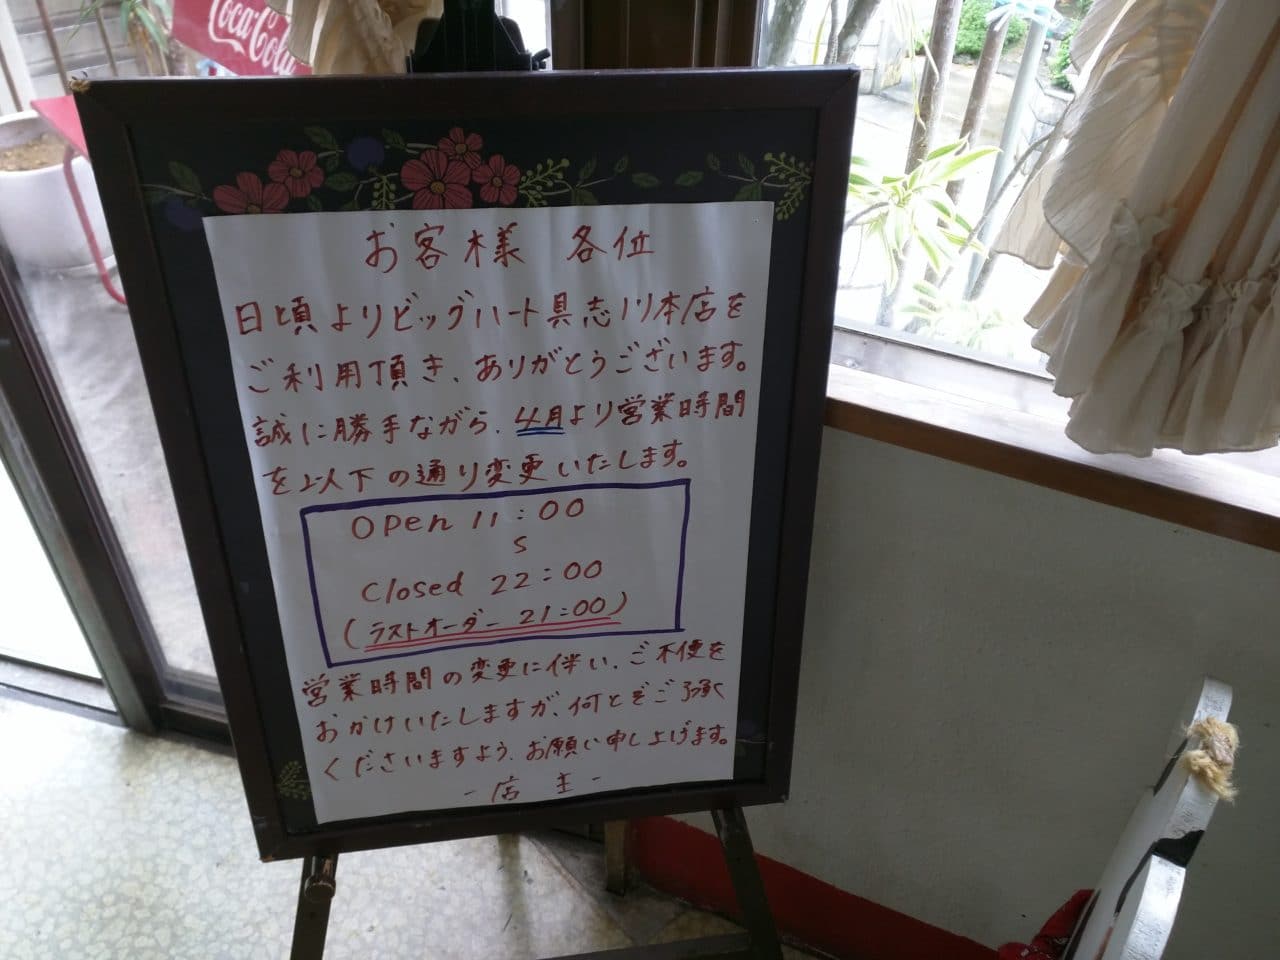 Coca-Cola
お客様 各位
日頃よりビッグハート具志川本店を
ご利用頂き、ありがとうございます。
誠に勝手ながら、4月より営業時間
を以下の通り変更いたします。
open 11:00
S
closed 22:00
(ラストオーダー 21:00)
営業時間の変更に伴い、ご不便を
おかけいたしますが、何とぞご了承
くださいますよう、お願い申し上げます。
-店 主-